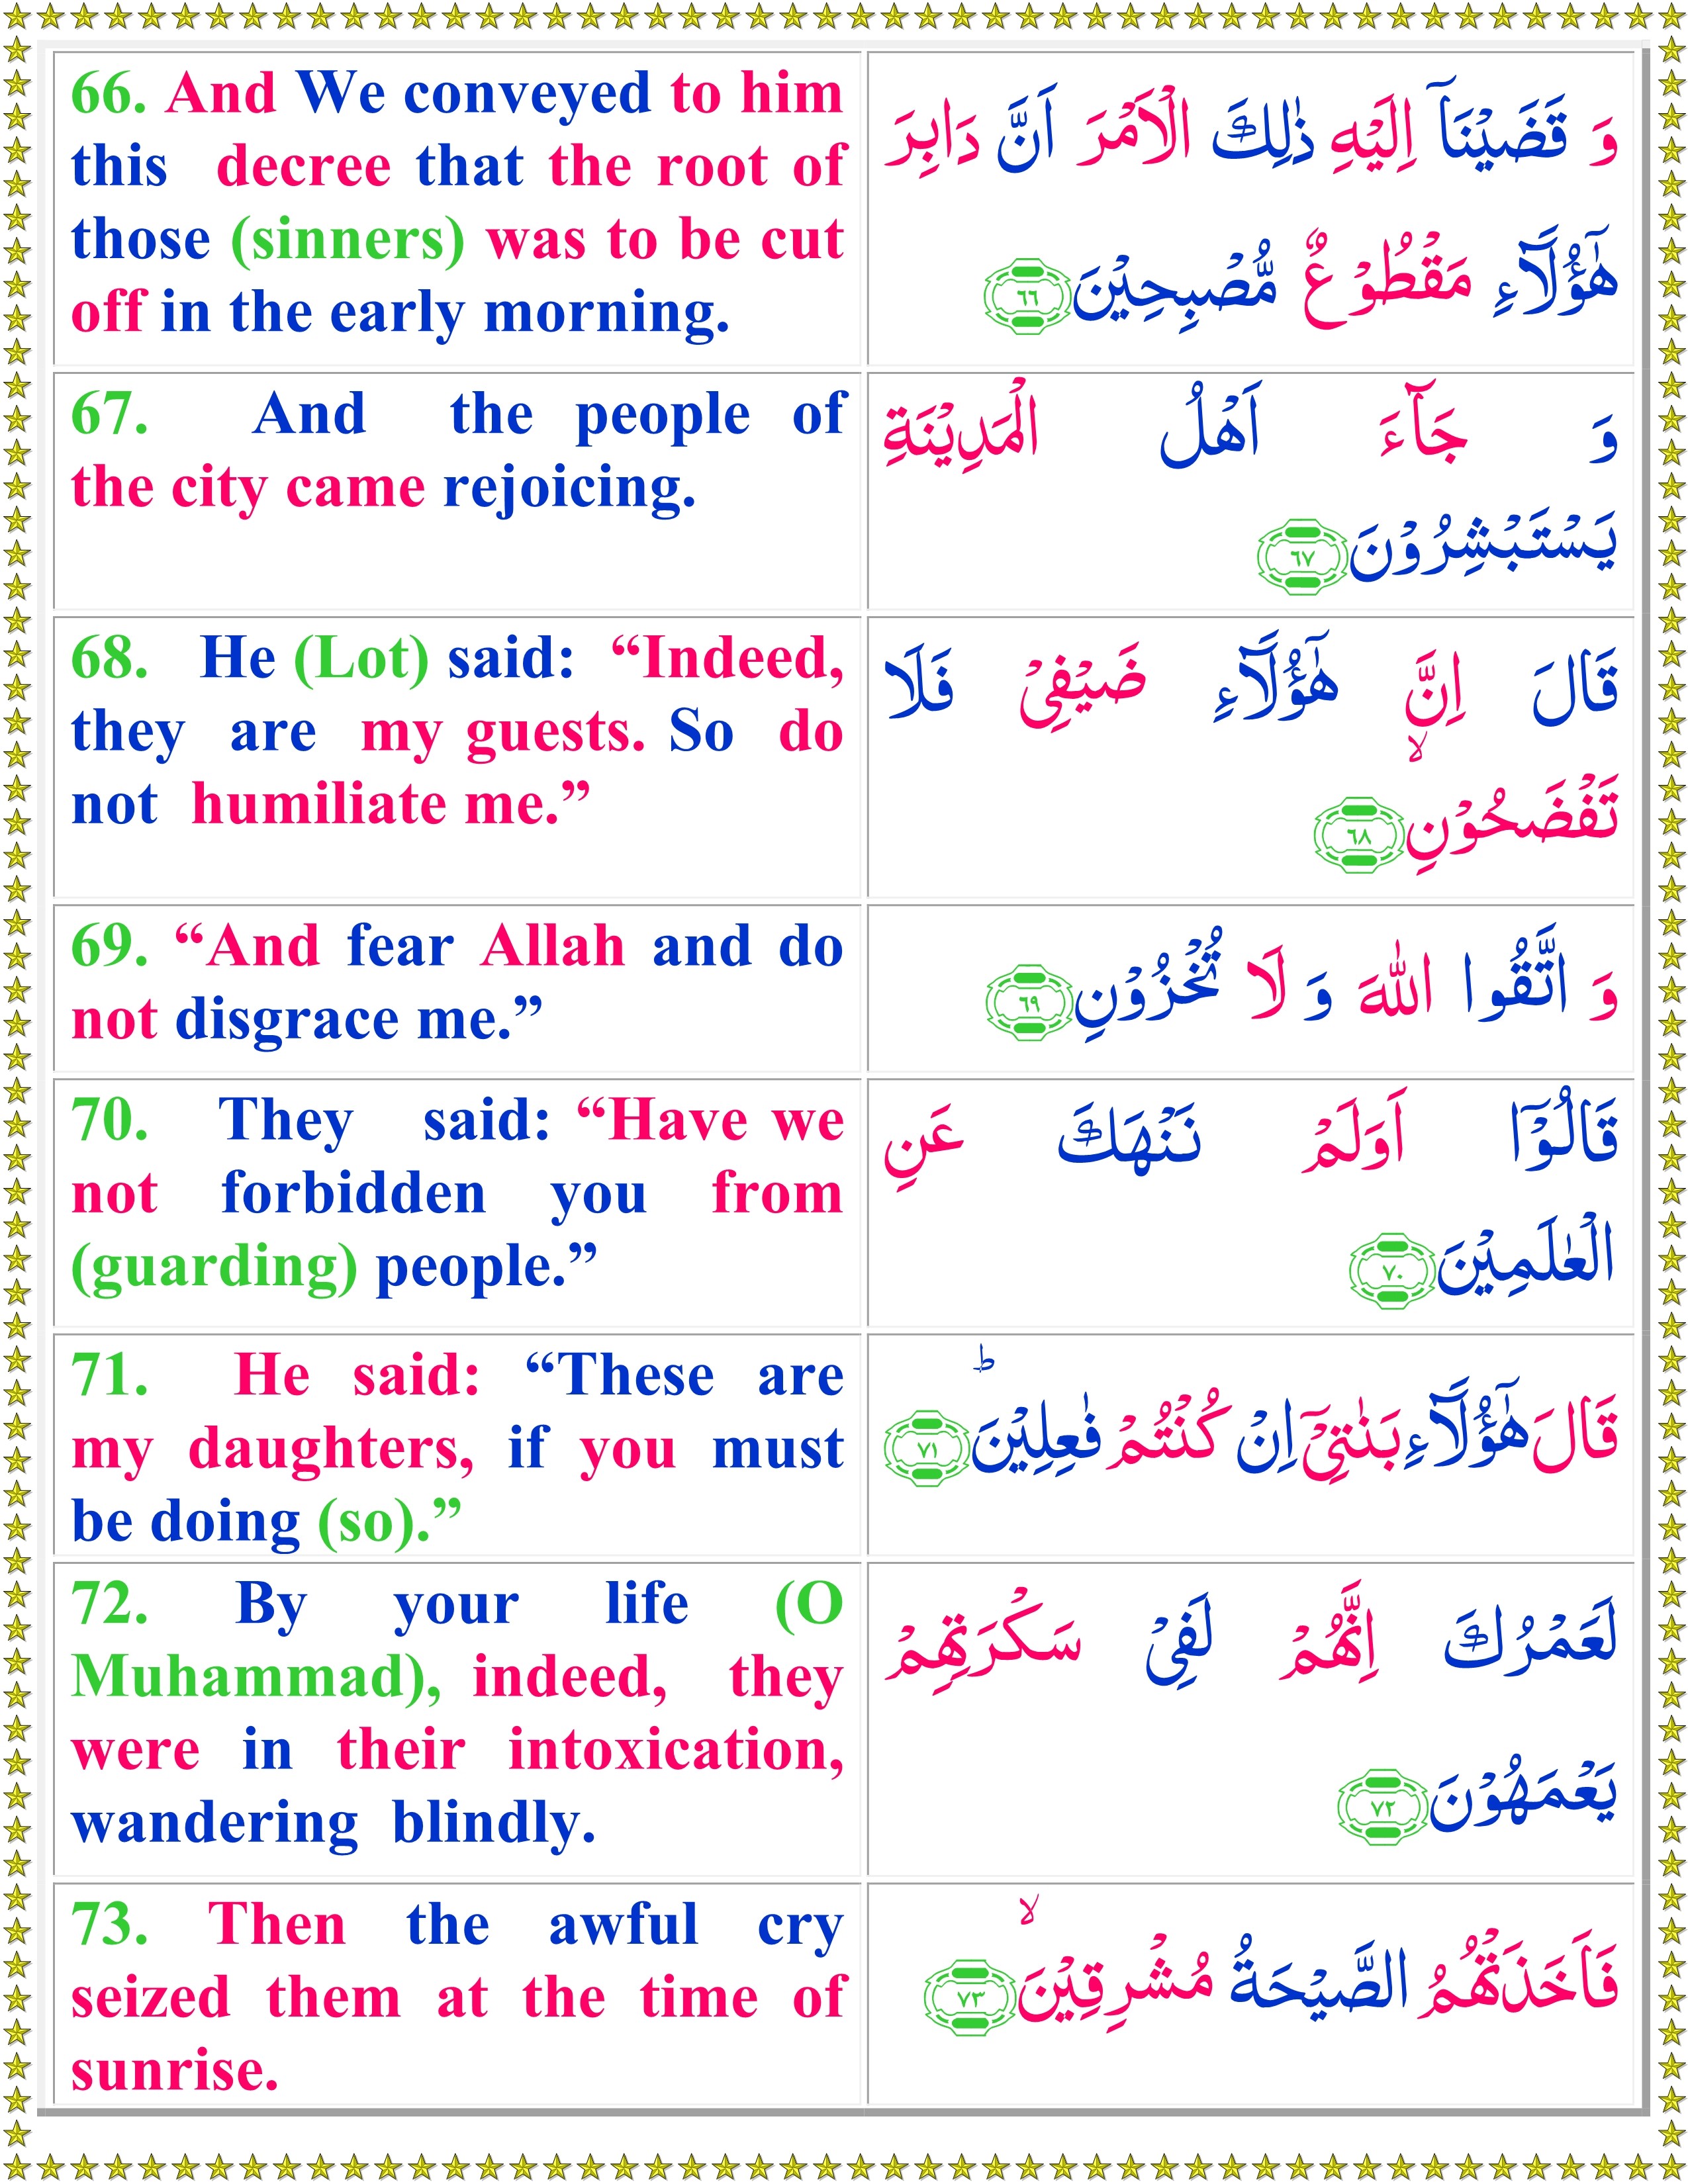 66. And We conveyed to him
this decree that the root of
those (sinners) was to be cut
off in the early morning.
وَ قَضَيْنَاۤ اِلَيْهِ ذٰلِكَ الْاَمْرَ اَنَّ دَابِرَ
هٰۤؤُلَآءِ مَقْطُوْعٌ مُّصْبِحِيْنَ ٦٦
67. And the people of
the city came rejoicing.
وَ جَآءَ اَهْلُ الْمَدِيْنَةِ
يَسْتَبْشِرُوْنَ ٦٧
68. He (Lot) said: “Indeed,
they are my guests. So do
not humiliate me.”
قَالَ اِنَّ هٰۤؤُلَآءِ ضَيْفِيْ فَلَا
تَفْضَحُوْنِ ۙ ٦٨
69. “And fear Allah and do
not disgrace me.”
وَ اتَّقُوا اللّٰهَ وَ لَا تُخْزُوْنِ ٦٩
70. They said: “Have we
not forbidden you from
(guarding) people.”
قَالُوْۤا اَوَلَمْ نَنْهَكَ عَنِ
الْعٰلَمِيْنَ ٧٠
71. He said: “These are
my daughters, if you must
be doing (so).”
قَالَ هٰۤؤُلَآءِ بَنٰتِيْۤ اِنْ كُنْتُمْ فٰعِلِيْنَ ؕ ٧١
72. By your life (O
Muhammad), indeed, they
were in their intoxication,
wandering blindly.
لَعَمْرُكَ اِنَّهُمْ لَفِيْ سَكْرَتِهِمْ
يَعْمَهُوْنَ ٧٢
73. Then the awful cry
seized them at the time of
sunrise.
فَاَخَذَتْهُمُ الصَّيْحَةُ مُشْرِقِيْنَ ۙ ٧٣